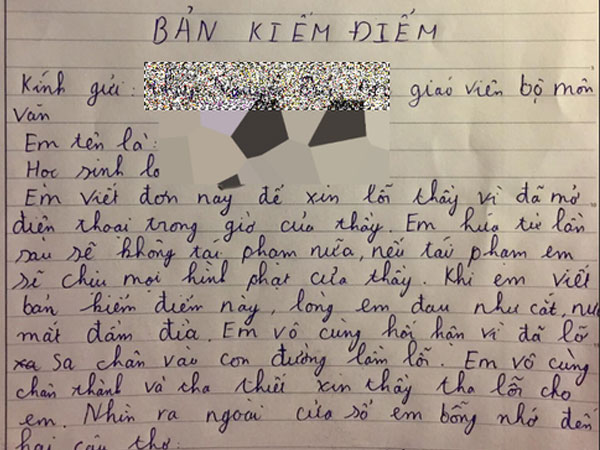 BẢN KIỂM ĐIỂM
Kính gửi: giáo viên bộ môn
Văn
Em tên là:
Học sinh lớ
Em viết đơn này để xin lỗi thầy vì đã mở
điện thoại trong giờ của thầy. Em hứa từ lần
sau sẽ không tái phạm nữa, nếu tái phạm em
sẽ chịu mọi hình phạt của thầy. Khi em viết
bản kiểm điểm này, lòng em đau như cắt, nướ
mắt đầm đìa. Em vô cùng hối hận vì đã lỡ
xa sa chân vào con đường lầm lỗi. Em vô cùng
chân thành và tha thiết xin thầy tha lỗi cho
em. Nhìn ra ngoài cửa sổ em bỗng nhớ đến
hai câu thơ: